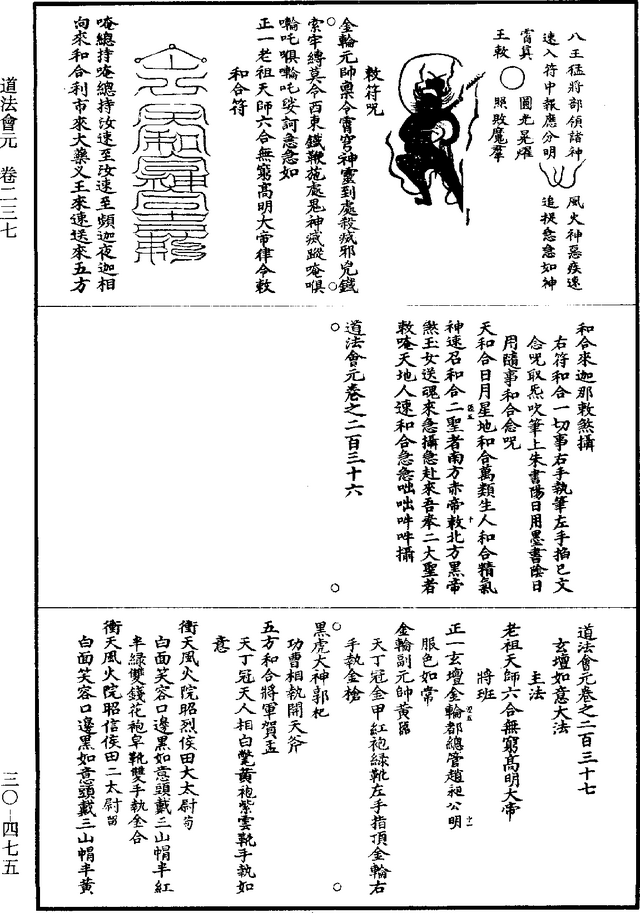 八王猛將部領諸神
速入符中報應分明
霄㝠　圓光晃耀
王敕　照敗魔羣
風火神惡疾速
追捉急急如神
敕符呪
金輪元帥禀令霄宫神靈到處殺㓕邪鬼鐵
索牢縛莫令西東鐵鞭施處鬼神㓕蹤唵㗢
㘕吒㗢㘕吒娑訶急急如
正一老祖天師六合無窮髙明大帝律令敕
和合符
唵總持唵總持汝速至汝速至頻迦夜迦相
向來和合利市來大藥义王來速送來五方
和合來迦那敕煞攝
右符和合一切事右手執筆左手掐巳文
念呪取炁吹筆上朱書陽日用墨書陰日
用隨事和合念呪
天和合日月星地和合萬類生人和合精氣
神速召和合二聖者南方赤帝敕北方黑帝
煞玉女送魂來急攝急赴來吾奉二大聖者
敕唵天地人速和合急急咄咄吽吽攝
道法會元卷之二百三十六
道法會元卷之二百三十七
玄壇如意大法
主法
老祖天師六合無窮髙明大帝
將班
正一玄壇金輪都總管趙昶公明
服色如常
金輪副元帥黄
天丁冠金甲紅袍緑靴左手指頂金輪右
手執金槍
黑虎大神郭杞
功曹相執開天斧
五方和合將軍賀盂
天丁冠天人相白鱉黄袍紫雲靴手執如
意
衝天風火院昭烈侯田大太尉苟
白面笑容口邊黑如意頭戴三山帽半紅
半緑雙錢花袍皁靴雙手執金合
衝天風火院昭信侯田二太尉㽞
白面笑容口邊黑如意頭戴三山帽半黄
道法會元　卷二三七
三〇－四七五